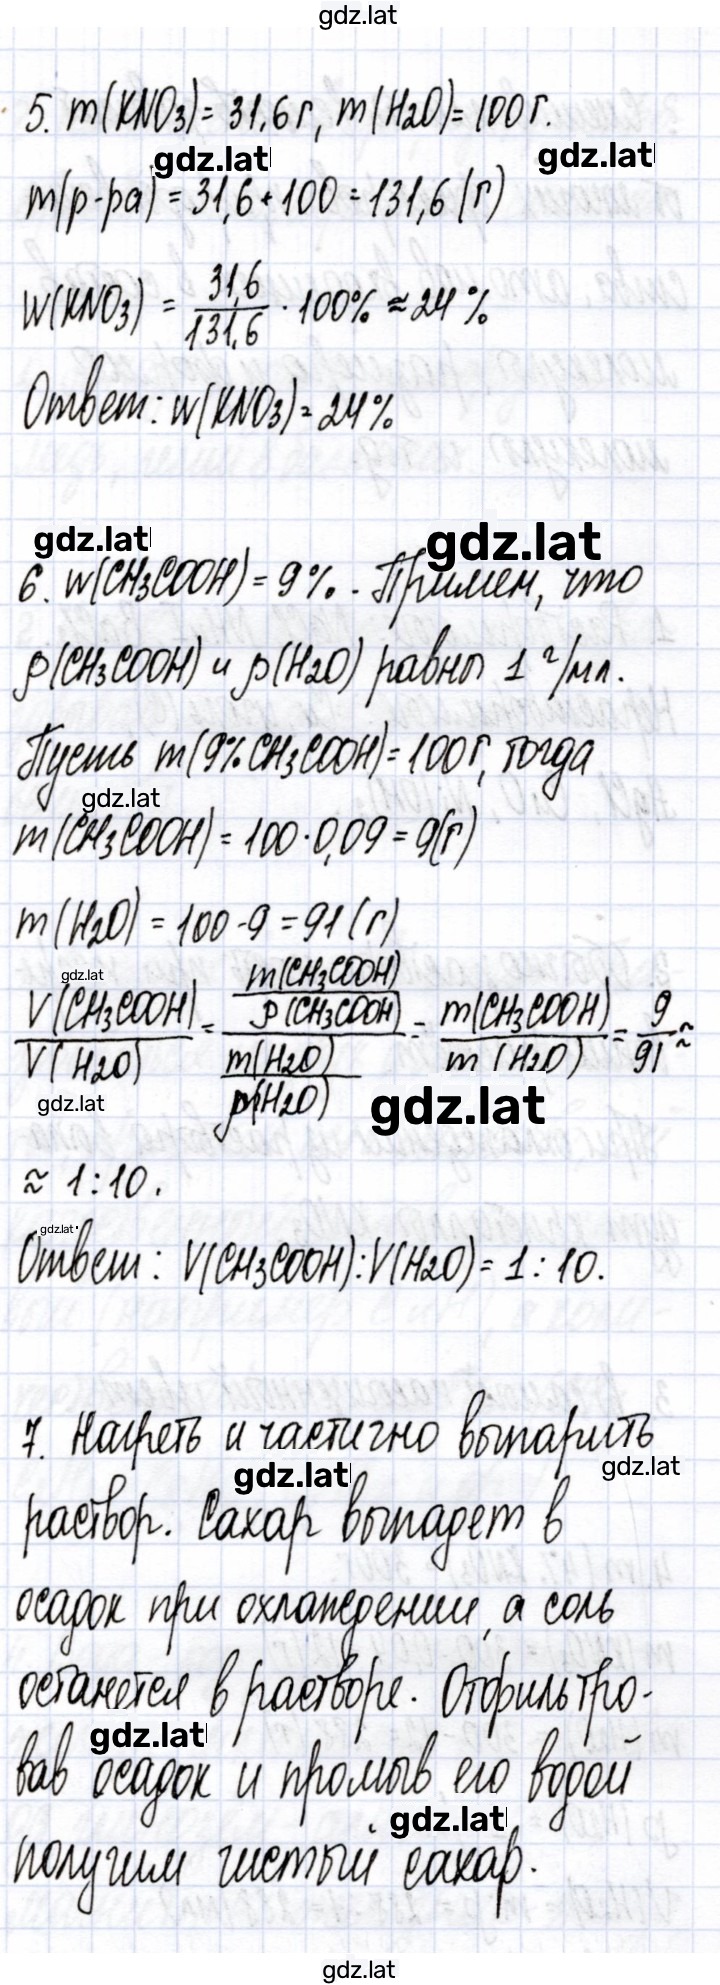 gdz.lat
5. m(KNO3) = 31,6 г, m(H2O) = 100 г.
gdz.lat gdz.lat
m(р-ра) = 31,6 + 100 = 131,6 (г)
W(KNO3) = 31,6/131,6 · 100% ≈ 24%
Ответ: w(KNO3) = 24%
gdz.lat gdz.lat
6. w(CH3COOH) = 9%. Примем, что
ρ(CH3COOH) и ρ(H2O) равны 1 г/мл.
Пусть m(9% CH3COOH) = 100 г, тогда
gdz.lat
m(CH3COOH) = 100 · 0,09 = 9(г)
m(H2O) = 100 - 9 = 91 (г)
gdz.lat
V(CH3COOH)/V(H2O) = (m(CH3COOH)/ρ(CH3COOH))/(m(H2O)/ρ(H2O)) = m(CH3COOH)/m(H2O) = 9/91 ≈
gdz.lat gdz.lat
≈ 1:10.
gdz.lat
Ответ: V(CH3COOH):V(H2O) = 1:10.
7. Нагреть и частично выпарить
gdz.lat gdz.lat
раствор. Сахар выпадет в
осадок при охлаждении, а соль
останется в растворе. Отфильтро-
gdz.lat
вав осадок и промыв его водой
gdz.lat
получим чистый сахар.
gdz.lat